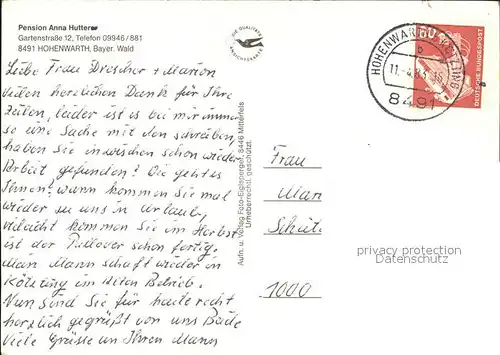 Pension Anna Hutterer
Gartenstraße 12, Telefon 09946/881
8491 HOHENWARTH, Bayer. Wald
Liebe Frau Drescher + Marion
vielen herzlichen Dank für Ihre
Zeilen, leider ist es bei mir immer
so eine Sache mit den schreiben,
haben Sie inzwischen schon wieder
Arbeit gefunden? Wie geht es
Ihnen? wann kommen Sie mal
wieder zu uns in Urlaub,
vieleicht kommen Sie im Herbst
ist der Pullover schon fertig.
Mein Mann schaft wieder in
Kötzting im alten Betrieb.
Nun sind Sie für heute recht
herzlich gegrüßt von uns Beide
Viele Grüsse an Ihren Mann
DIE QUALITÄTS
ANSICHTSKARTE
Aufn. u. Verlag Foto-Eiglsperger, 8446 Mitterfels
Urheberrechtl. geschützt.
HOHENWARTH KÖTZTING
b
11.-4.83.16
8491
DEUTSCHE BUNDESPOST
Frau
Mar
Schüt
1000
privacy protection
Datenschutz